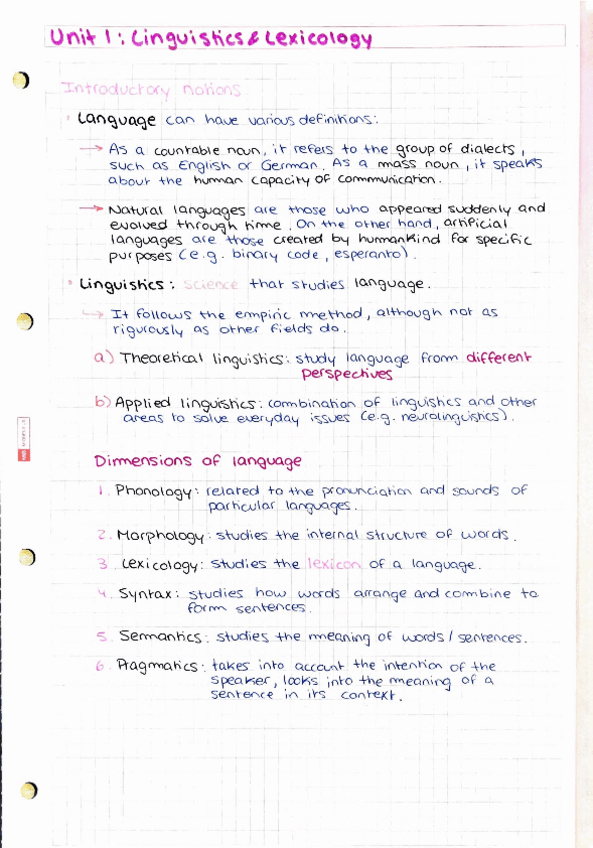 Unit 1: Linguistics & Lexicology
Introductory notions
· Language can have various definitions:
→ As a countable noun, it refers to the group of dialects,
such as English or German. As a mass noun, it speaks
about the human capacity of communication.
→ Natural languages are those who appeared suddenly and
evolved through time. On the other hand, artificial
languages are those created by humankind for specific
purposes (e.g. binary code, esperanto).
· Linguistics: science that studies language.
↪ It follows the empiric method, although not as
rigurously as other fields do.
a) Theoretical linguistics: study language from different
perspectives
b) Applied linguistics: combination of linguistics and other
areas to solve everyday issues (e.g. neurolinguistics).
Dimensions of language
1. Phonology: related to the pronunciation and sounds of
particular languages.
2. Morphology: studies the internal structure of words.
3. Lexicology: studies the lexicon of a language.
4. Syntax: studies how words arrange and combine to
form sentences.
5. Semantics: studies the meaning of words / sentences.
6. Pragmatics: takes into account the intention of the
speaker, looks into the meaning of a
sentence in its context.